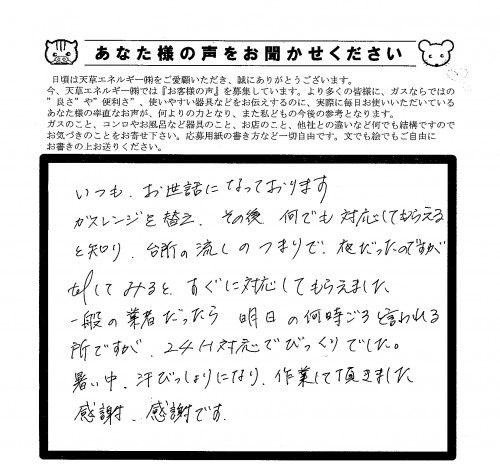 あなた様の声をお聞かせください
日頃は天草エネルギー㈱をご愛顧いただき、誠にありがとうございます。
今、天草エネルギー㈱では『お客様の声』を募集しています。より多くの皆様に、ガスならではの
”良さ”や”便利さ”、使いやすい器具などをお伝えするのに、実際に毎日お使いいただいている
あなた様の率直なお声が、何よりの力となり、また私どもの今後の参考となります。
ガスのこと、コンロやお風呂など器具のこと、お店のこと、他社との違いなど何でも結構ですので
お気づきのことをお寄せ下さい。応募用紙の書き方など一切自由です。文でも絵でもご自由に
お書きの上お送りください。
いつも、お世話になっております
ガスレンジを替え、その後 何でも対応してもらえる
と知り、台所の流しのつまりで、夜だったのですが
telしてみると、すぐに対応してもらえました
一般の業者だったら 明日の何時ごろと言われる
所ですが、24H対応でびっくりでした。
暑い中、汗びっしょりになり、作業して頂きました
感謝、感謝です。